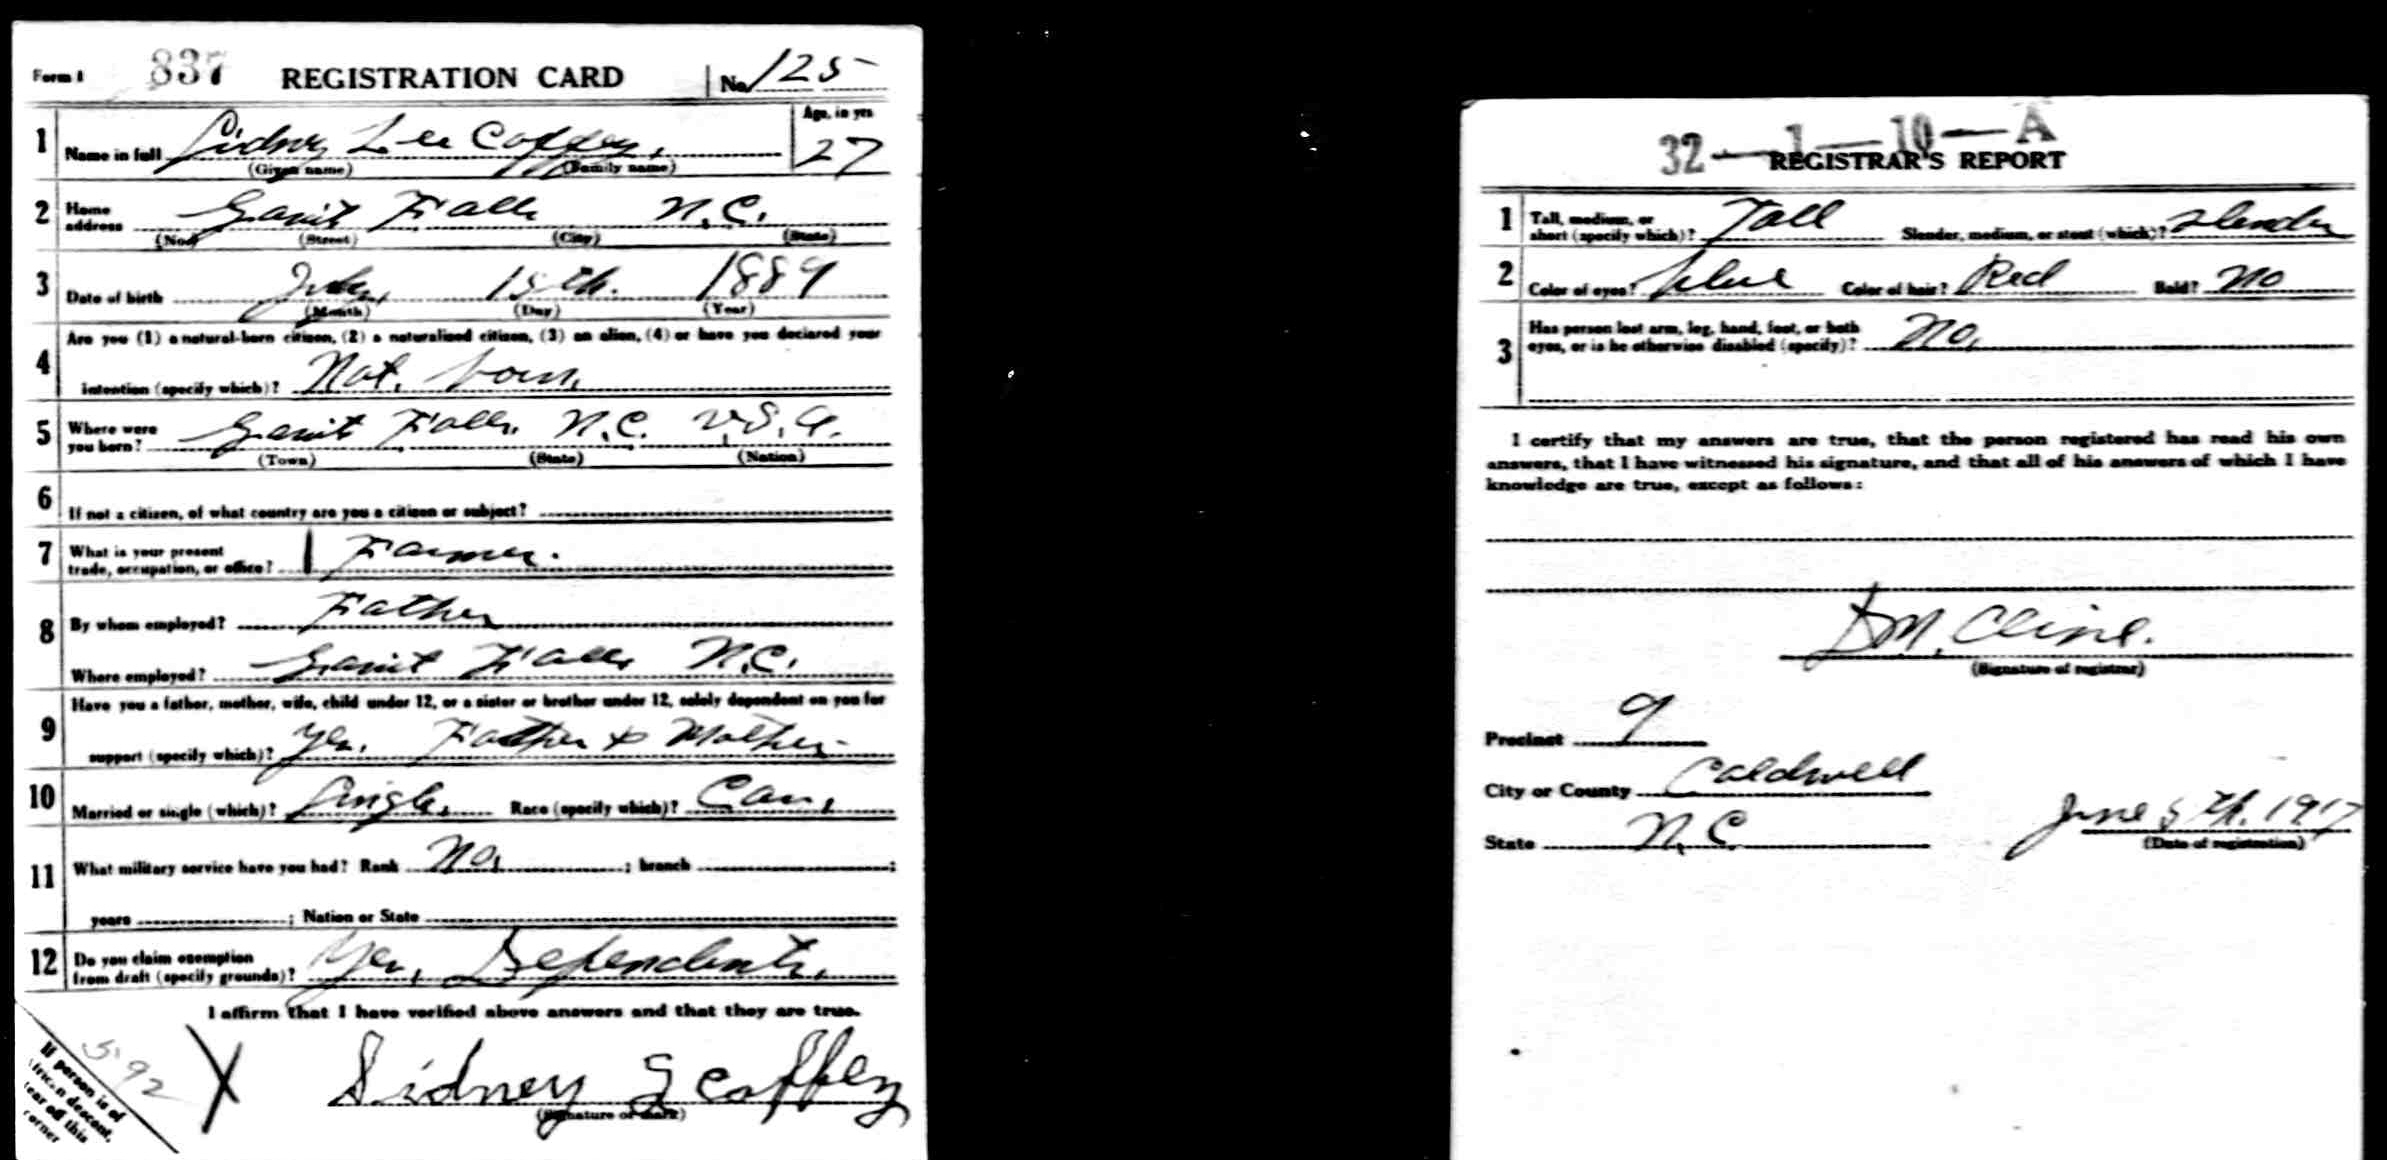 Form 1 837 REGISTRATION CARD No. 125
1 Name in full Sidney Lee Coffey, Age, in yrs 27
(Given name) (Family name)
2 Home address Granit Falls N.C.
(No.) (Street) (City) (State)
3 Date of birth July, 15th. 1889
(Month) (Day) (Year)
4 Are you (1) a natural-born citizen, (2) a naturalized citizen, (3) an alien, (4) or have you declared your
intention (specify which)? Nat. born.
5 Where were you born? Granit Falls, N.C. U.S.A.
(Town) (State) (Nation)
6 If not a citizen, of what country are you a citizen or subject?
7 What is your present trade, occupation, or office? Farmer.
8 By whom employed? Father
Where employed? Granit Falls N.C.
9 Have you a father, mother, wife, child under 12, or a sister or brother under 12, solely dependent on you for
support (specify which)? Yes, Father & Mother
10 Married or single (which)? Single, Race (specify which)? Cau,
11 What military service have you had? Rank No, ; branch ;
years ; Nation or State
12 Do you claim exemption from draft (specify grounds)? Yes, Dependents,
I affirm that I have verified above answers and that they are true.
X Sidney L Coffey
(Signature or mark)
If person is of
African descent,
tear off this
corner
592
32—1—10—A
REGISTRAR'S REPORT
1 Tall, medium, or short (specify which)? Tall Slender, medium, or stout (which)? Slender
2 Color of eyes? blue Color of hair? Red Bald? No
3 Has person lost arm, leg, hand, foot, or both
eyes, or is he otherwise disabled (specify)? No,
I certify that my answers are true, that the person registered has read his own
answers, that I have witnessed his signature, and that all of his answers of which I have
knowledge are true, except as follows:
D.M. Cline.
(Signature of registrar)
Precinct 9
City or County Caldwell
State N.C. June 5th. 1917
(Date of registration)